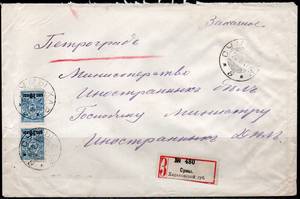 Заказное
Петроградъ
Министерство
Иностранныхъ дѣлъ
Господину Министру
Иностранныхъ Дѣлъ
З № 480
Сумы,
Харьковской губ.
СУМЫ